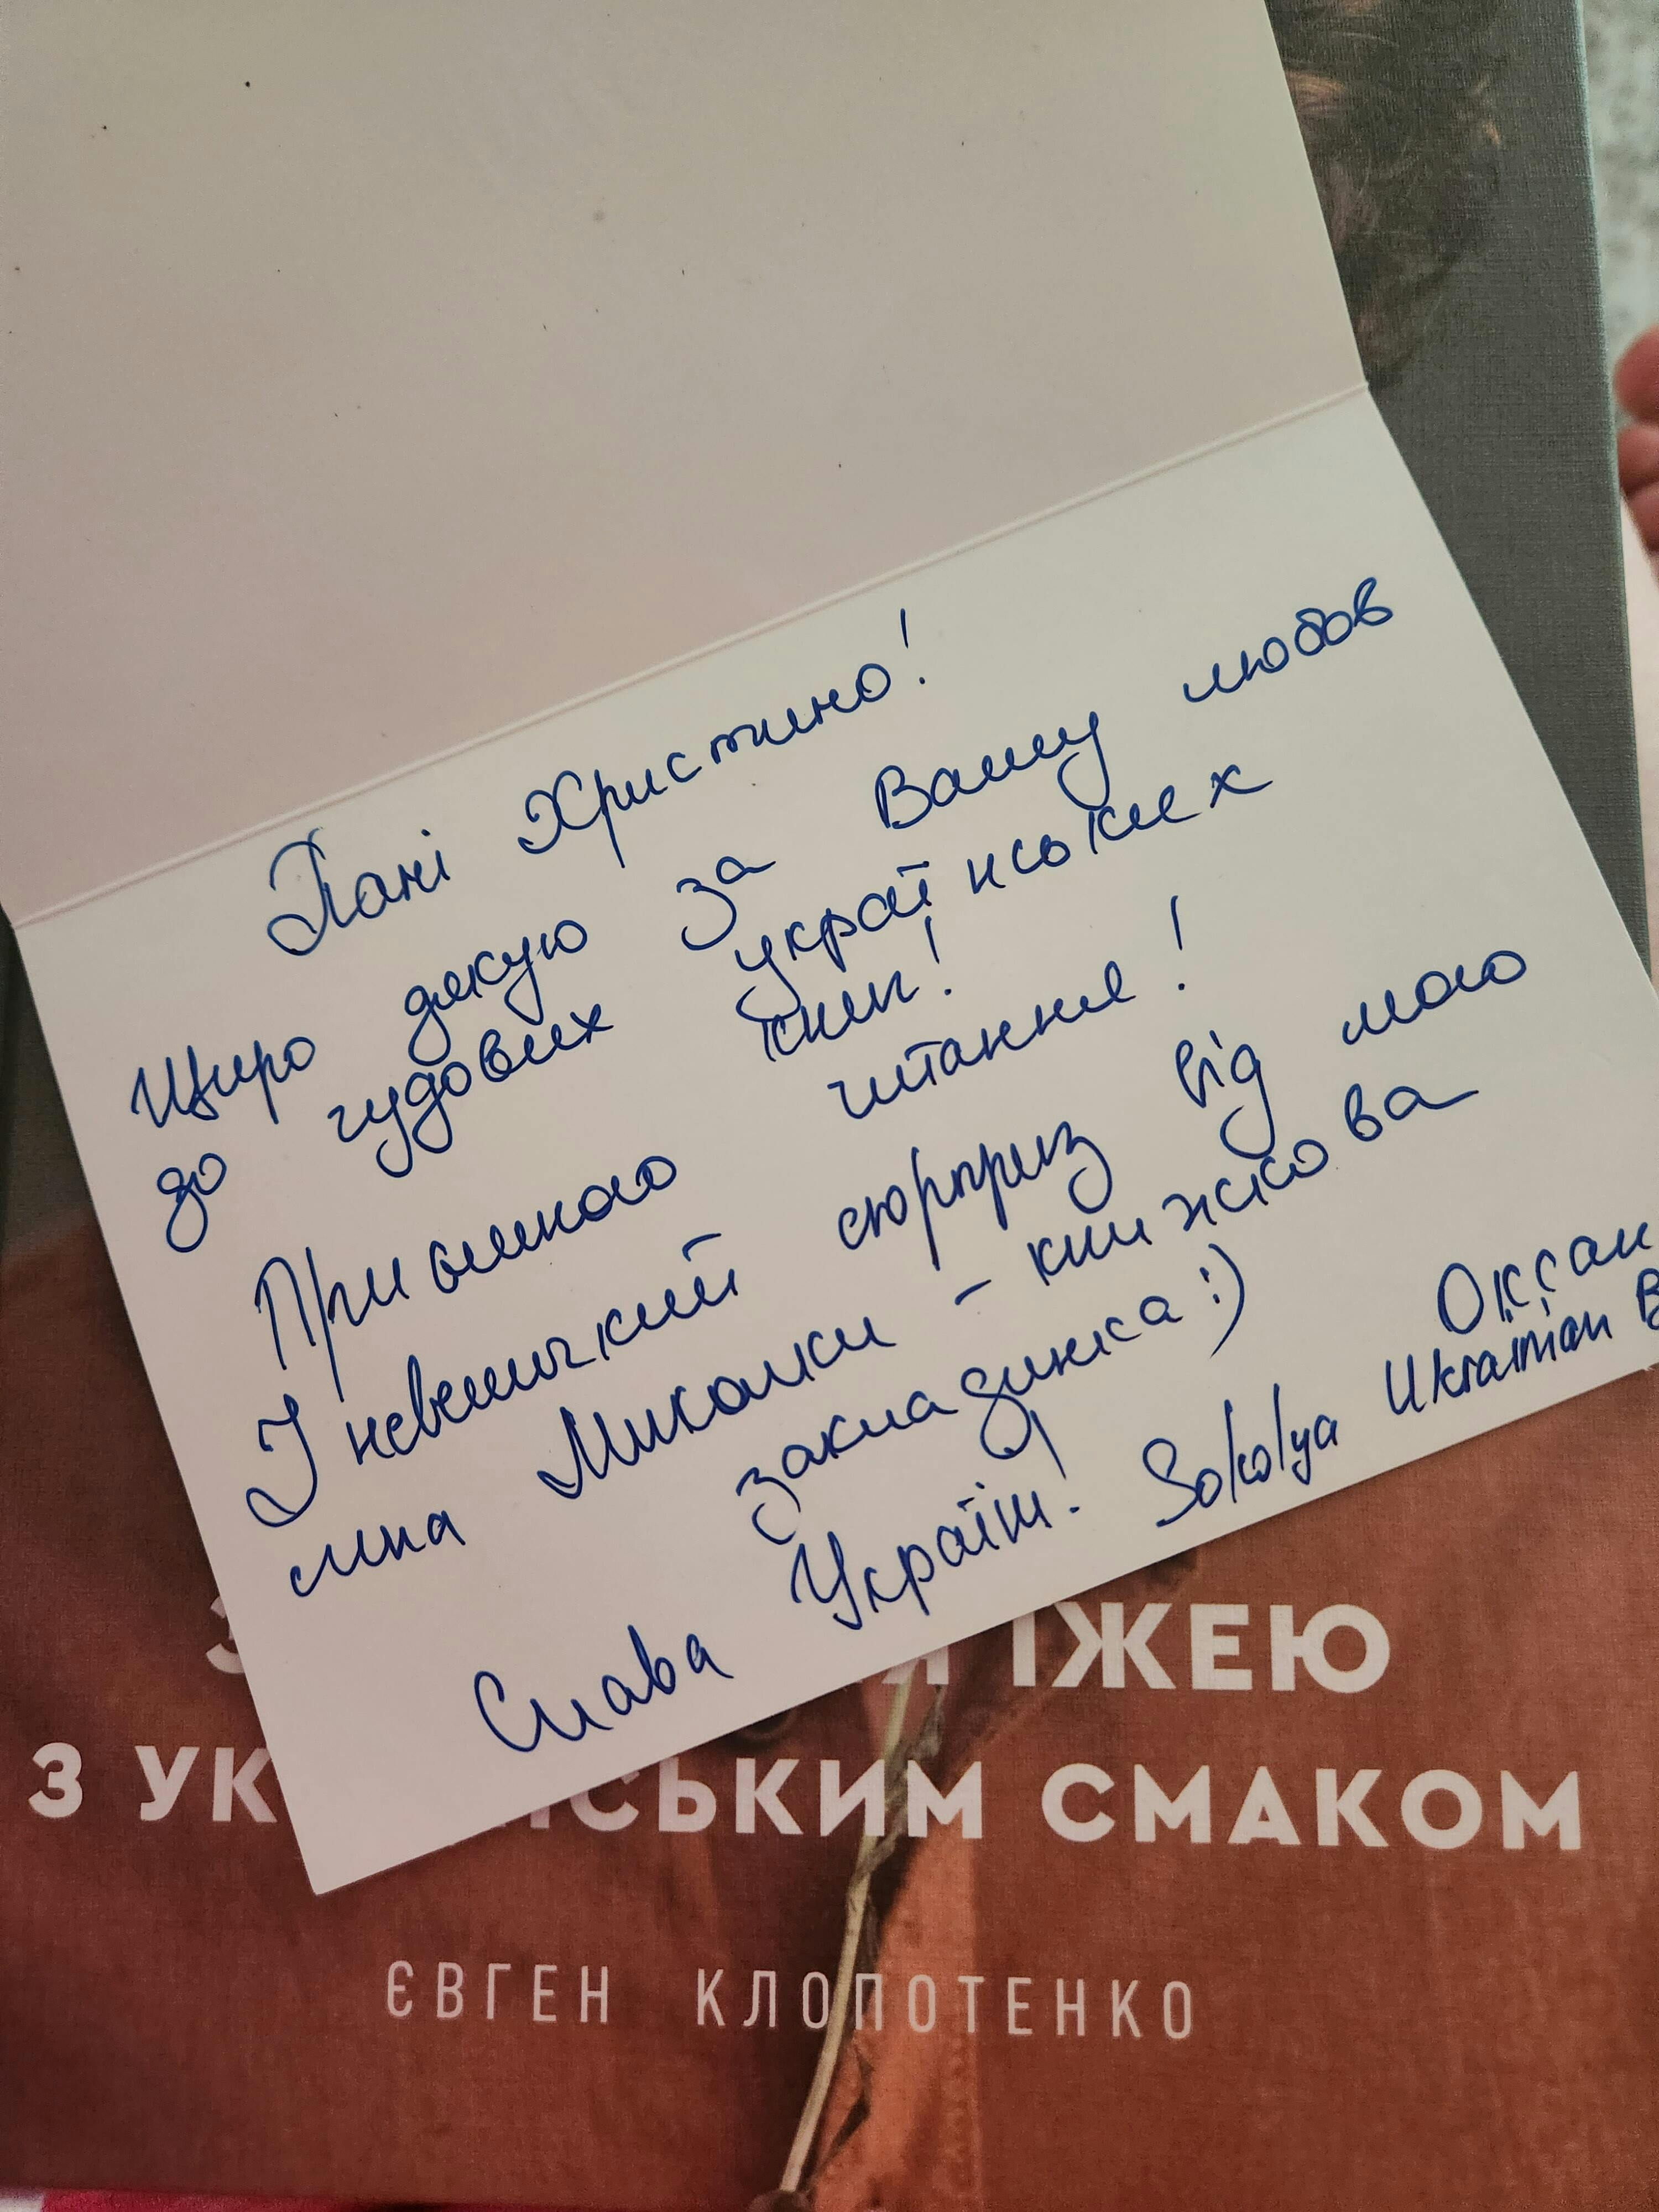 Пані Христино!
Щиро дякую за Вашу любов
до чудових українських
книг!
Приємного читання!
І невеличкий сюрприз від мого
сина Миколки – книжкова
закладинка :)
Слава Україні!
Оксан
Sokolya Ukrainian B
ЇЖЕЮ
З УК СЬКИМ СМАКОМ
ЄВГЕН КЛОПОТЕНКО